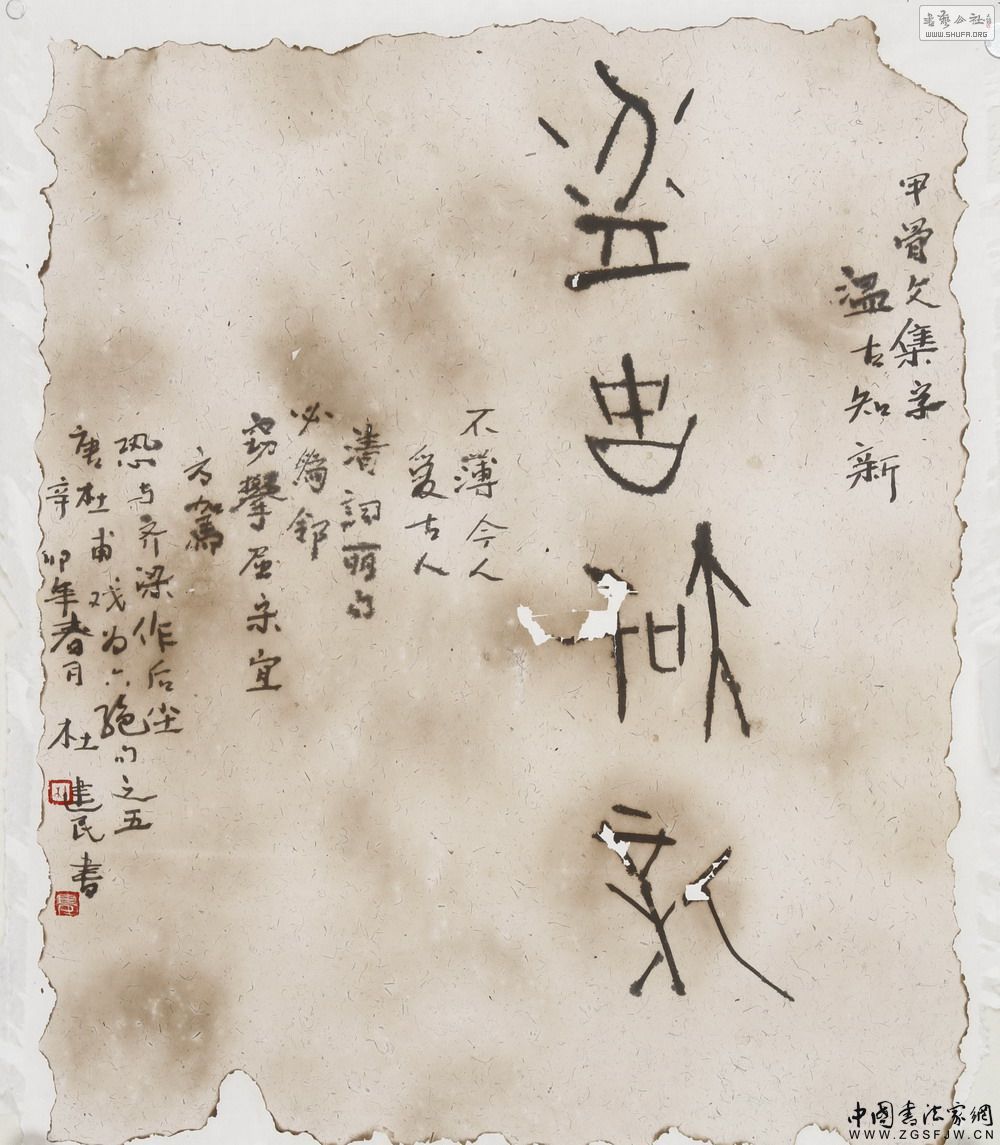 甲骨文集字
温古知新
温古知新
不薄今人
爱古人
清词丽句
必為邻
窃攀屈宋宜
方驾
恐与齐梁作后尘
唐杜甫戏为六绝句之五
辛卯年春月 杜建民书
書藝公社
WWW.SHUFA.ORG
中国书法家网
WWW.ZGSFJW.CN